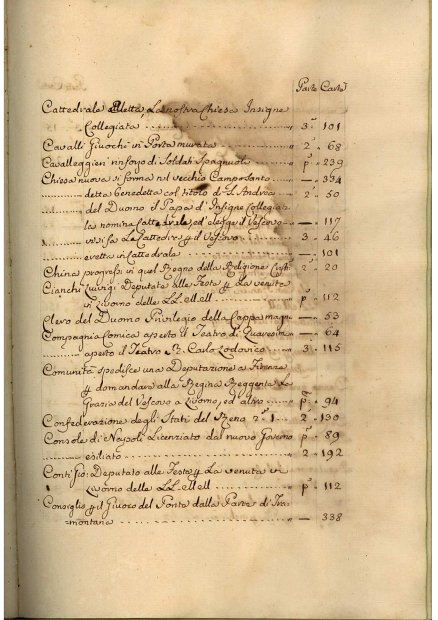 Parte Carte
Cattedrale eletta, La nostra Chiesa Insigne
Collegiata 3.ª 101
Cavalli Giuochi in Porta murata 2. 68
Cavalleggieri rinforzo di Soldati Spagnuoli pª 239
Chiesa nuova si forma nel vecchio Camposanto — 334
detta Benedetta col titolo di S. Andrea 2. 50
del Duomo il Papa d'Insigne Collegiata
la nomina Cattedrale, ed elegge il Vescovo — 117
vi si fa La Cattedra p il Vescovo 3. 46
eretta in Cattedrale — 101
China progressi in quel Regno della Religione 2. 20
Cianchi Luigi Deputato alle Feste p La venuta
in Livorno delle LL. MM. pª 112
Clero del Duomo Privilegio della Cappa magna — 53
Compagnia Comica aperto il Teatro di Quaresima — 64
aperto il Teatro S. Carlo Lodovico 3. 115
Comunità spedisce una Deputazione a Firenze
p domandare alla Regina Reggente La
Grazia del Vescovo a Livorno, ed altro pª 94
Confederazione degli Stati del Reno 2. 130
Console di Napoli Licenziato dal nuovo Governo pª 89
esiliato 2. 192
Conti Deputato alle Feste p La venuta in
Livorno delle LL. MM. pª 112
Consiglio p il Giuoco del Ponte dalla Parte di Tra
montana — 338